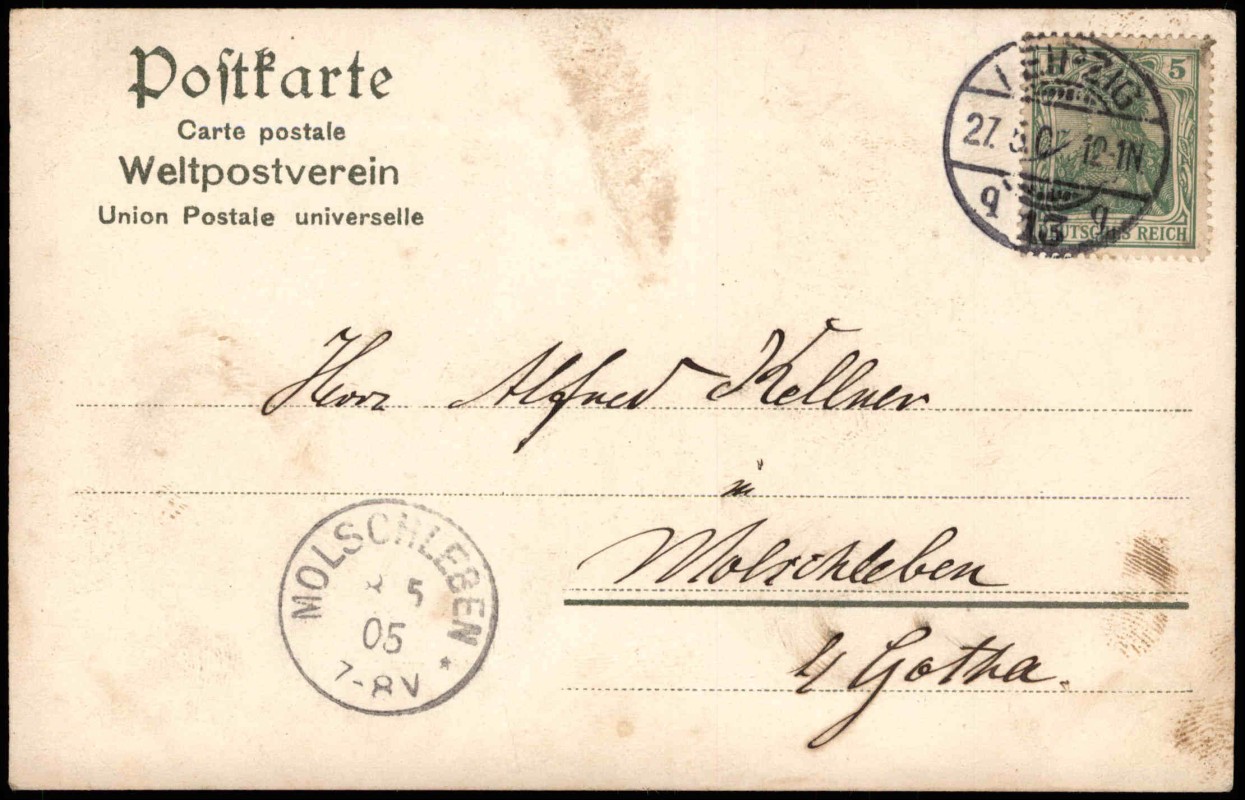 Postkarte
Carte postale
Weltpostverein
Union Postale universelle
5
LEIPZIG
27. 5. 12-1N
13
q q
DEUTSCHES REICH
Herr Alfred Kellner
in
Molschleben
b/ Gotha.
MOLSCHLEBEN
5
05
7-8V
*